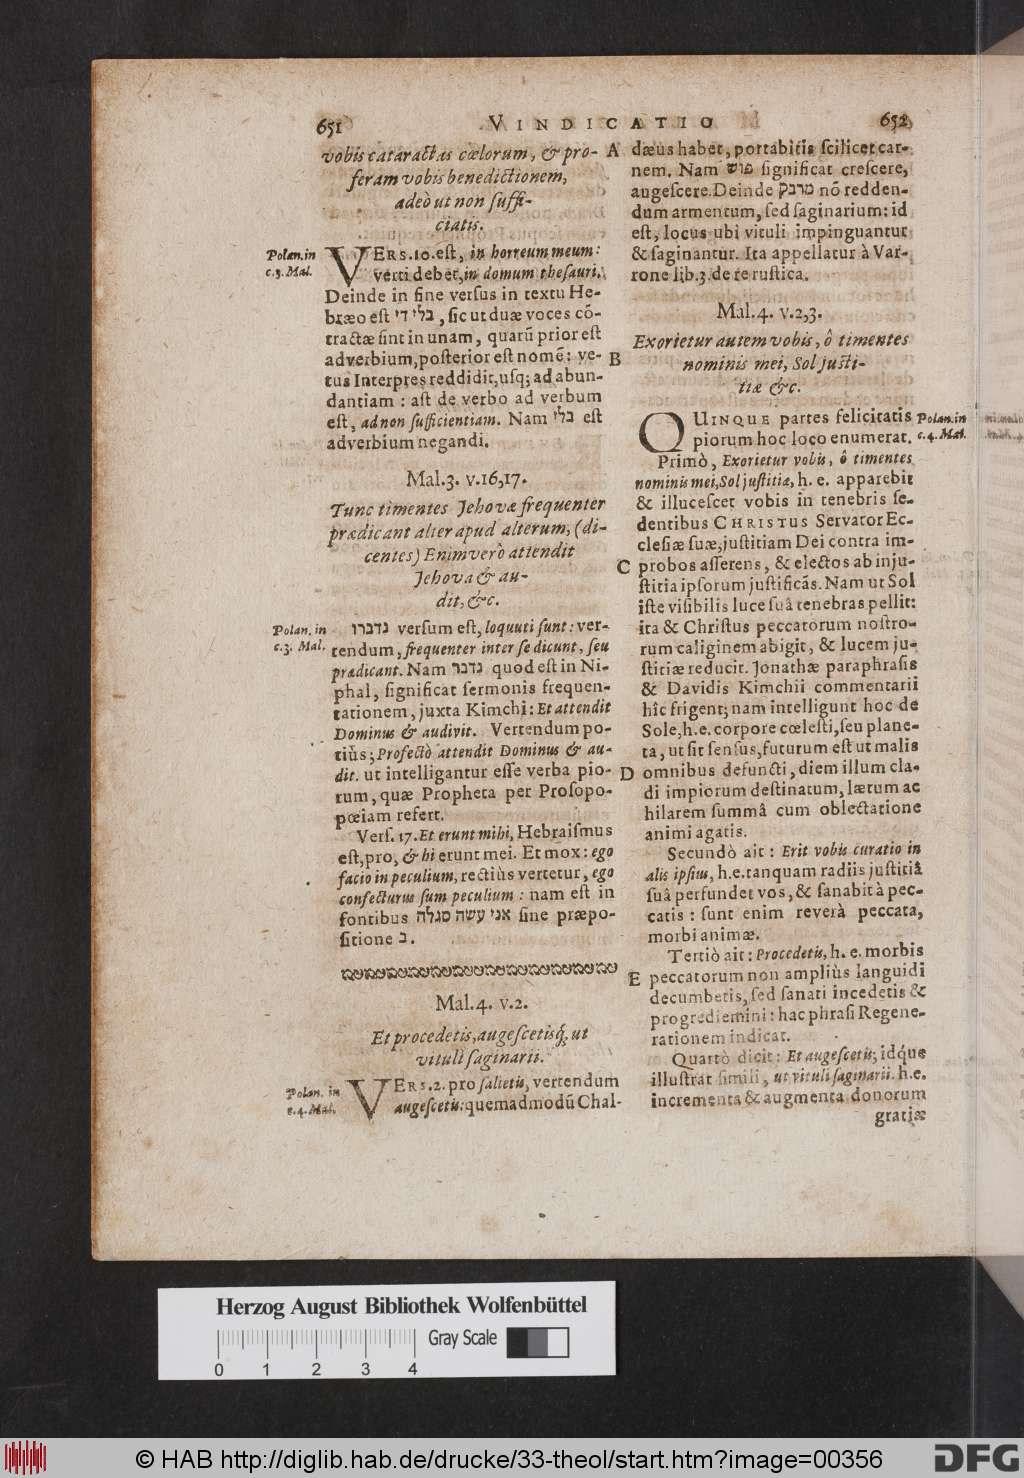 651
VINDICATIO
652
vobis cataractas cœlorum, & pro-
feram vobis benedictionem,
adeò ut non ſuffi-
ciatis.
Polan. in
c.3. Mal.
VERS. 10. eſt, in horreum meum:
verti debet, in domum theſauri.
Deinde in fine verſus in textu He-
bræo eſt בלי די, ſic ut duæ voces cō-
tractæ ſint in unam, quarū prior eſt
adverbium, poſterior eſt nomē: ve-
tus Interpres reddidit, uſq; ad abun-
dantiam: aſt de verbo ad verbum
eſt, ad non ſufficientiam. Nam בלי eſt
adverbium negandi.
Mal.3. v.16,17.
Tunc timentes Jehovæ frequenter
prædicant alter apud alterum, (di-
centes) Enimverò attendit
Jehova & au-
dit, &c.
Polan. in
c.3. Mal.
נדברו verſum eſt, loquuti ſunt: ver-
tendum, frequenter inter ſe dicunt, ſeu
prædicant. Nam נדבר quod eſt in Ni-
phal, ſignificat ſermonis frequen-
tationem, juxta Kimchi: Et attendit
Dominus & audivit. Vertendum po-
tiùs; Profectò attendit Dominus & au-
dit. ut intelligantur eſſe verba pio-
rum, quæ Propheta per Proſopo-
pœiam refert.
Verſ. 17. Et erunt mihi, Hebraiſmus
eſt, pro, & hi erunt mei. Et mox: ego
facio in peculium, rectiùs vertetur, ego
confecturus ſum peculium: nam eſt in
fontibus אני עשה סגלה ſine præpo-
ſitione ב.
Mal.4. v.2.
Et procedetis, augeſcetisq́, ut
vituli ſaginarii.
Polan. in
c.4. Mal.
VERS. 2. pro ſalietis, vertendum
augeſcetis: quemadmodū Chal-
A
B
C
D
E
dæus habet, portabitis ſcilicet car-
nem. Nam פוש ſignificat creſcere,
augeſcere. Deinde מרבק nō redden-
dum armentum, ſed ſaginarium: id
eſt, locus ubi vituli impinguantur
& ſaginantur. Ita appellatur à Var-
rone lib.3. de re ruſtica.
Mal.4. v.2,3.
Exorietur autem vobis, ô timentes
nominis mei, Sol juſti-
tiæ &c.
Polan. in
c.4. Mal.
QUINQUE partes felicitatis
piorum hoc loco enumerat.
Primò, Exorietur vobis, ô timentes
nominis mei, Sol juſtitiæ, h. e. apparebit
& illuceſcet vobis in tenebris ſe-
dentibus CHRISTUS Servator Ec-
cleſiæ ſuæ, juſtitiam Dei contra im-
probos aſſerens, & electos ab inju-
ſtitia ipſorum juſtificās. Nam ut Sol
iſte viſibilis luce ſuâ tenebras pellit:
ita & Chriſtus peccatorum noſtro-
rum caliginem abigit, & lucem ju-
ſtitiæ reducit. Jonathæ paraphraſis
& Davidis Kimchii commentarii
hîc frigent; nam intelligunt hoc de
Sole, h.e. corpore cœleſti, ſeu plane-
ta, ut ſit ſenſus, futurum eſt ut malis
omnibus defuncti, diem illum cla-
di impiorum deſtinatum, lætum ac
hilarem ſummâ cum oblectatione
animi agatis.
Secundò ait: Erit vobis curatio in
alis ipſius, h.e. tanquam radiis juſtitiâ
ſuâ perfundet vos, & ſanabit à pec-
catis: ſunt enim reverà peccata,
morbi animæ.
Tertiò ait: Procedetis, h. e. morbis
peccatorum non ampliùs languidi
decumbetis, ſed ſanati incedetis &
progrediemini: hac phraſi Regene-
rationem indicat.
Quartò dicit: Et augeſcetis; idq́ue
illuſtrat ſimili, ut vituli ſaginarii. h.e.
incrementa & augmenta donorum
gratiæ
Herzog August Bibliothek Wolfenbüttel
Gray Scale
0 1 2 3 4
© HAB http://diglib.hab.de/drucke/33-theol/start.htm?image=00356
DFG